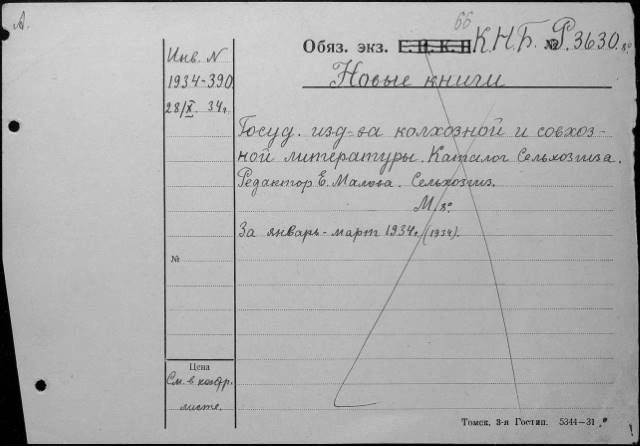 А.
66
Обяз. экз. Г. Ц. К. П К.Н.Б. № Р.3630.8°
Новые книги
Инв. N
1934-390
28/X. 34г.
Госуд. изд-ва колхозной и совхоз-
ной литературы. Каталог Сельхозгиза.
Редактор Е. Малова. Сельхозгиз.
М. 8°
За январь-март 1934г. (1934).
№
Цена
См. в контр.
листе.
Томск, 3-я Гостип. 5344—31